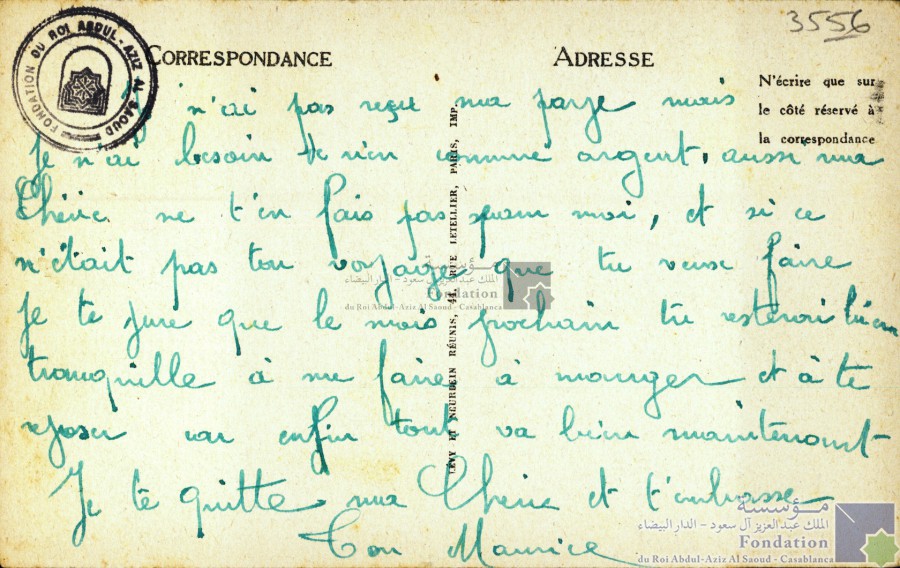 3556
FONDATION DU ROI ABDUL-AZIZ AL SAOUD
CORRESPONDANCE
ADRESSE
N'écrire que sur
le côté réservé à
la correspondance
Je n'ai pas reçu ma paye mais
Je n'ai besoin de rien comme argent, aussi ma
Chérie ne t'en fais pas pour moi, et si ce
n'était pas ton voyage que tu veux faire
Je te jure que le mois prochain tu resterai bien
tranquille à me faire à manger et à te
reposer car enfin tout va bien maintenant
Je te quitte ma Chérie et t'embrasse
Ton Maurice
LÉVY ET NEURDEIN RÉUNIS, 44, RUE LETELLIER, PARIS, IMP.
مؤسسة
الملك عبد العزيز آل سعود - الدار البيضاء
Fondation
du Roi Abdul-Aziz Al Saoud - Casablanca
مؤسسة
الملك عبد العزيز آل سعود - الدار البيضاء
Fondation
du Roi Abdul-Aziz Al Saoud - Casablanca